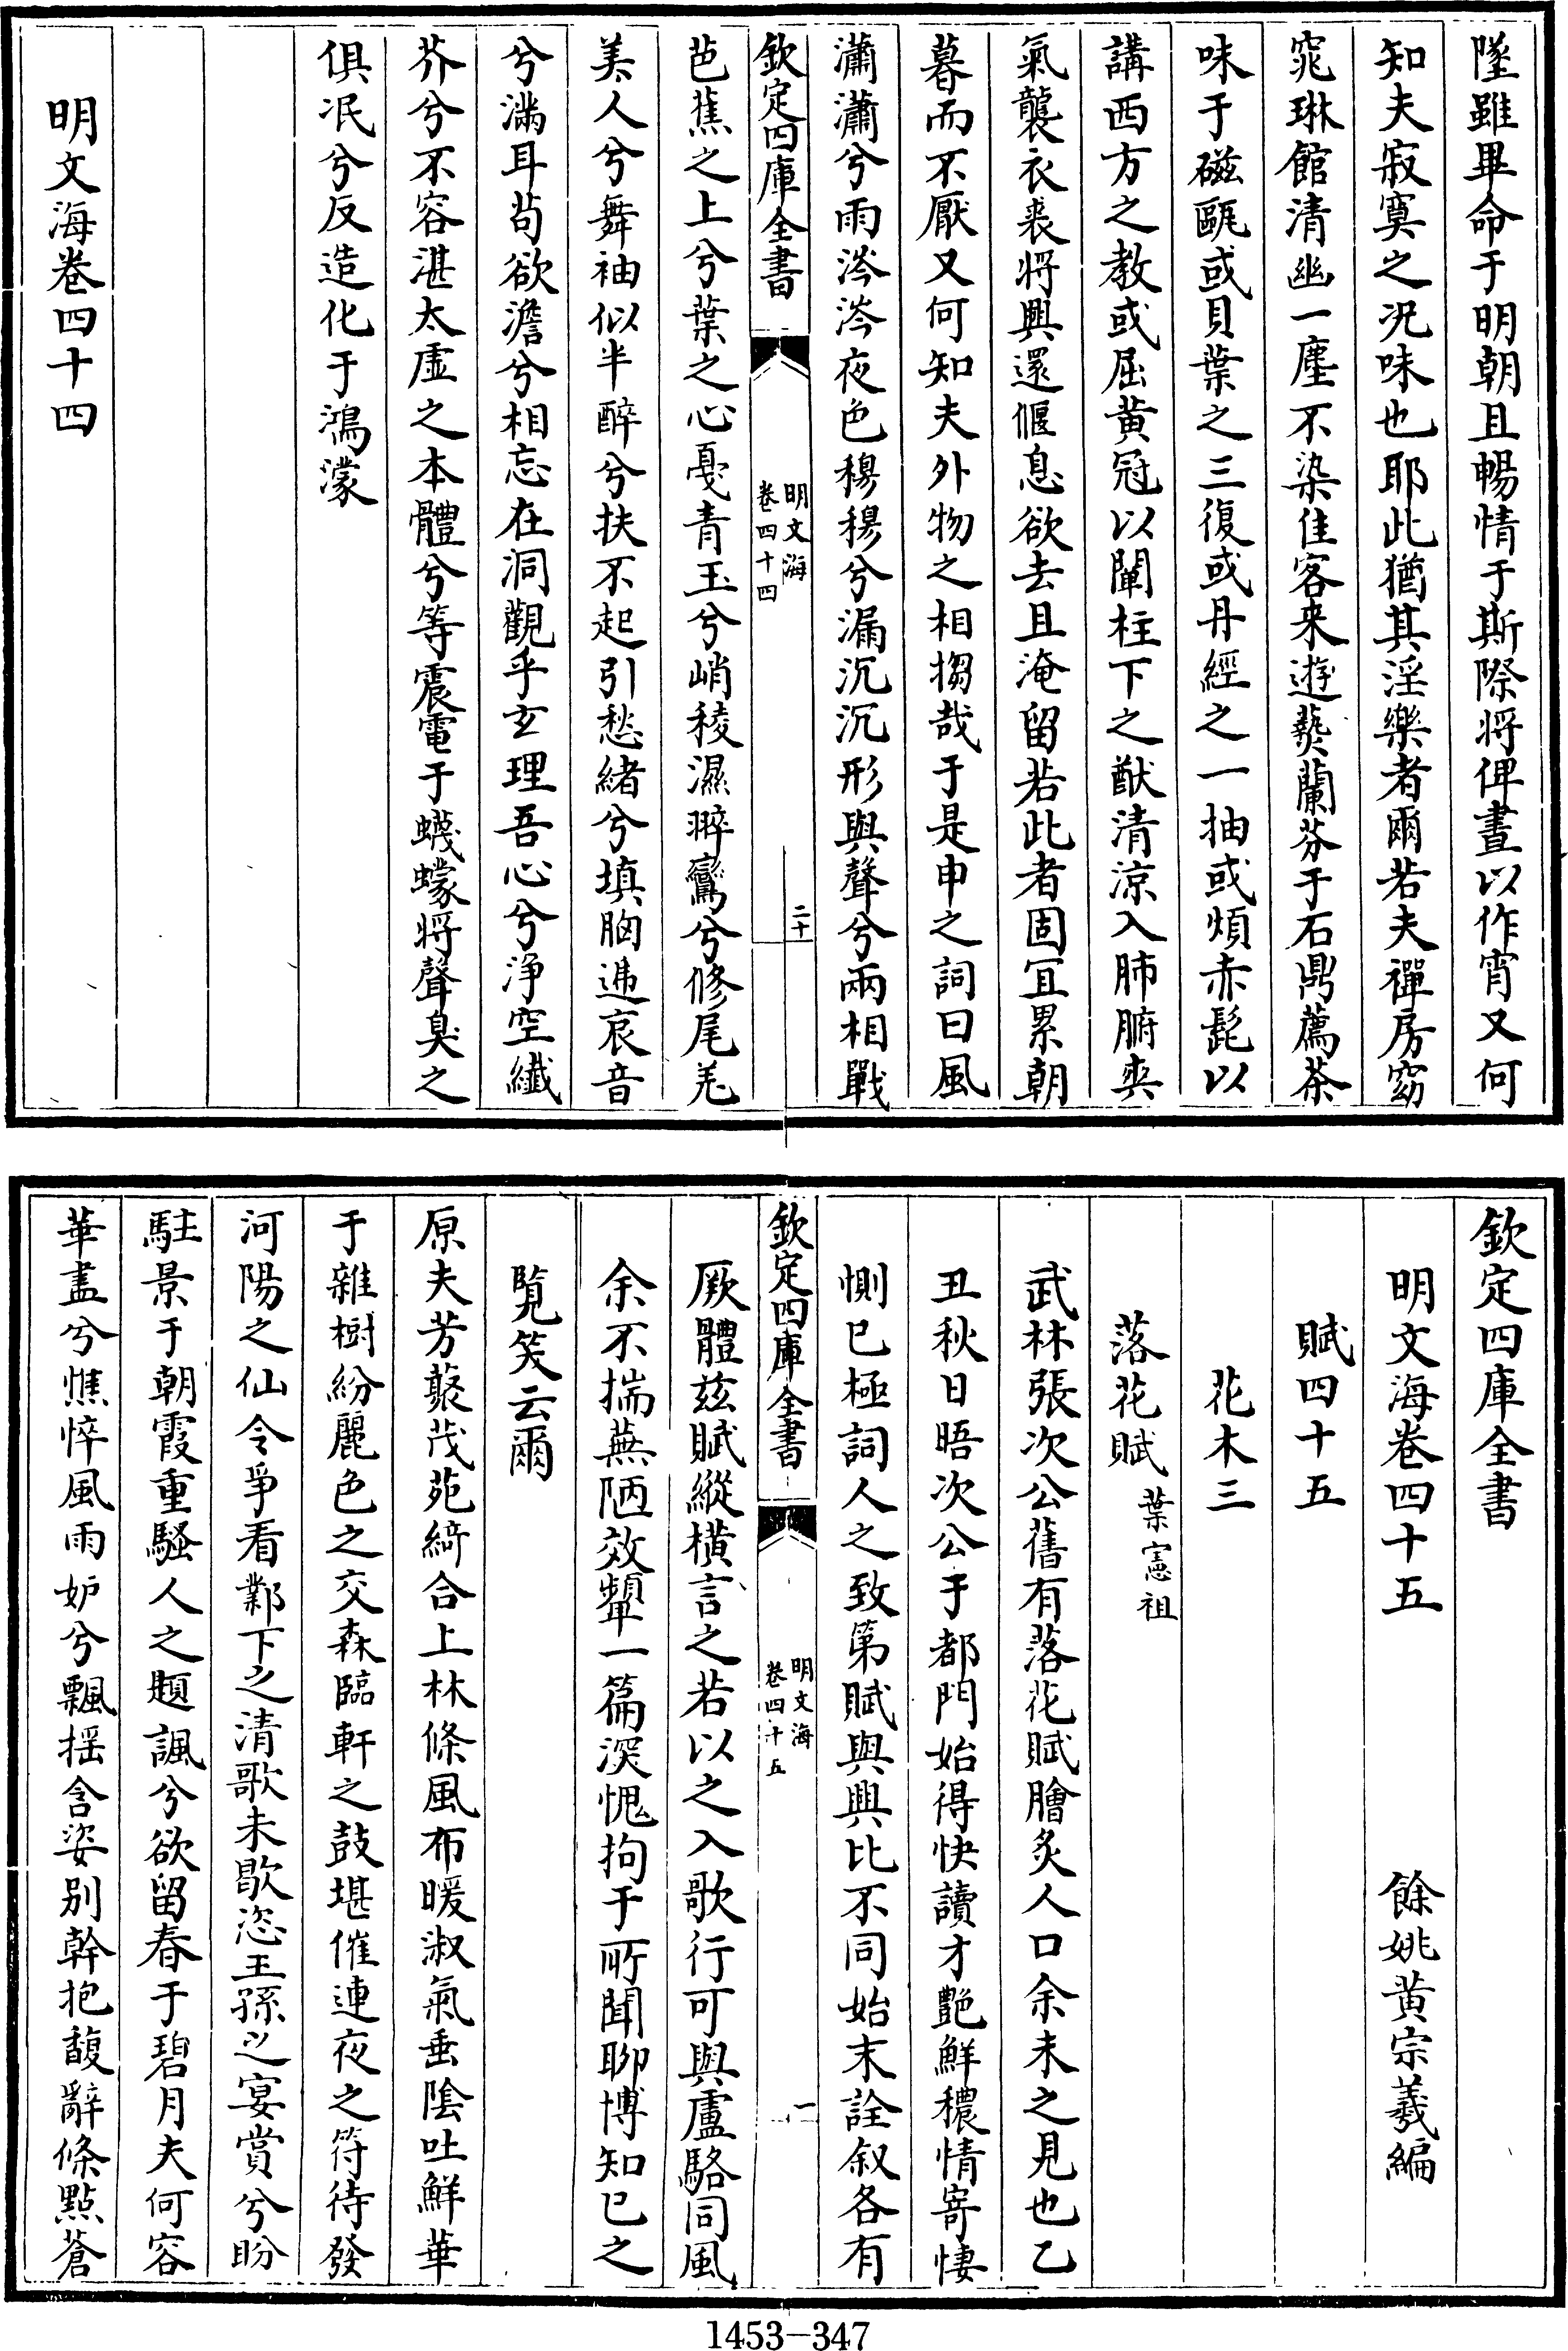 墜雖畢命于明朝且暢情于斯際将俾晝以作宵又何
知夫寂寞之况味也耶此猶其淫樂者爾若夫禪房窈
窕琳館清幽一塵不染佳客来遊爇蘭芬于石鼎薦茶
味于磁甌或貝葉之三復或丹經之一抽或煩赤髭以
講西方之教或屈黄冠以闡柱下之猷清涼入肺腑爽
氣襲衣裘将興還偃息欲去且淹留若此者固宜累朝
暮而不厭又何知夫外物之相搊哉于是申之詞曰風
瀟瀟兮雨涔涔夜色穆穆兮漏沉沉形與聲兮兩相戰
欽定四庫全書
明文海
卷四十四
二十
芭蕉之上兮葉之心戞青玉兮峭稜濕翠鸞兮修尾羌
美人兮舞袖似半醉兮扶不起引愁緒兮填胸遞哀音
兮滿耳茍欲澹兮相忘在洞觀乎玄理吾心兮浄空纖
芥兮不容湛太虚之本體兮等震電于蠛蠓将聲臭之
俱泯兮反造化于鴻濛
明文海卷四十四
欽定四庫全書
明文海卷四十五
餘姚黄宗羲編
賦四十五
花木三
落花賦 葉憲祖
武林張次公舊有落花賦膾炙人口余未之見也乙
丑秋日晤次公于都門始得快讀才艶鮮穠情寄悽
惻已極詞人之致第賦與興比不同始末詮叙各有
欽定四庫全書
明文海
卷四十五
一
厥體兹賦縱横言之若以之入歌行可與盧駱同風
余不揣蕪陋效顰一篇深愧拘于所聞聊博知已之
覧笑云爾
原夫芳藂茂苑綺合上林條風布暖淑氣垂陰吐鮮華
于雜樹紛麗色之交森臨軒之鼓堪催連夜之符待發
河陽之仙令爭看鄴下之清歌未歇恣王孫之宴賞兮盼
駐景于朝霞重騷人之題諷兮欲留春于碧月夫何容
華盡兮憔悴風雨妒兮飄揺含姿别幹抱馥辭條點蒼
1453-347